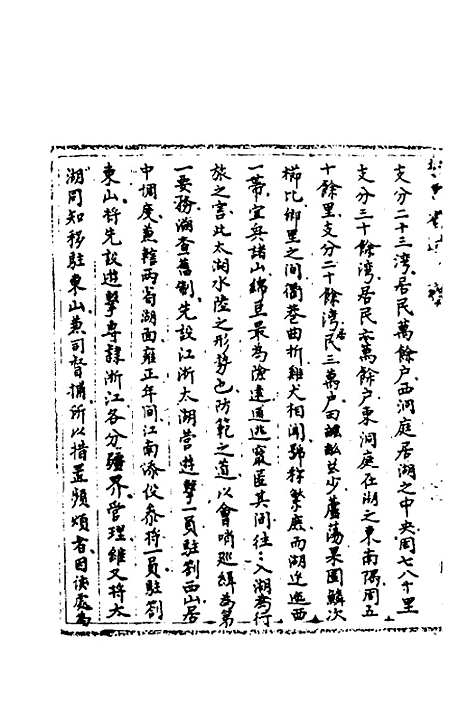 支分二十三湾居民萬餘户西洞庭居湖之中央周七八十里
支分三十餘湾居民亦萬餘户東洞庭在湖之東南隅周五
十餘里支分二十餘湾居民三萬户田畝並少蘆蕩果園鱗次
櫛比鄉里之間衢巷曲折雞犬相聞號稱繁庶而湖迆迤西
一帶宜興諸山綿亘最為險遠逋逃竄匿其间往:入湖為行
旅之害此太湖水陸之形勢也防範之道以會哨廵緝為第
一要務溯查舊制先設江浙太湖营遊擊一員駐劄西山居
中調度兼轄两省湖面雍正年间江南添设叅将一員駐劄
東山将先設遊擊專隸浙江各分疆界管理維又将太
湖同知移駐東山兼司督捕所以措置頻煩者因该處為